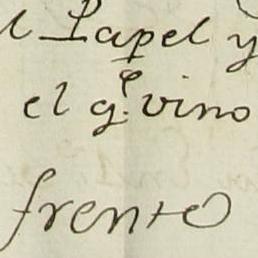 l Papel y
el q.e vino
frente